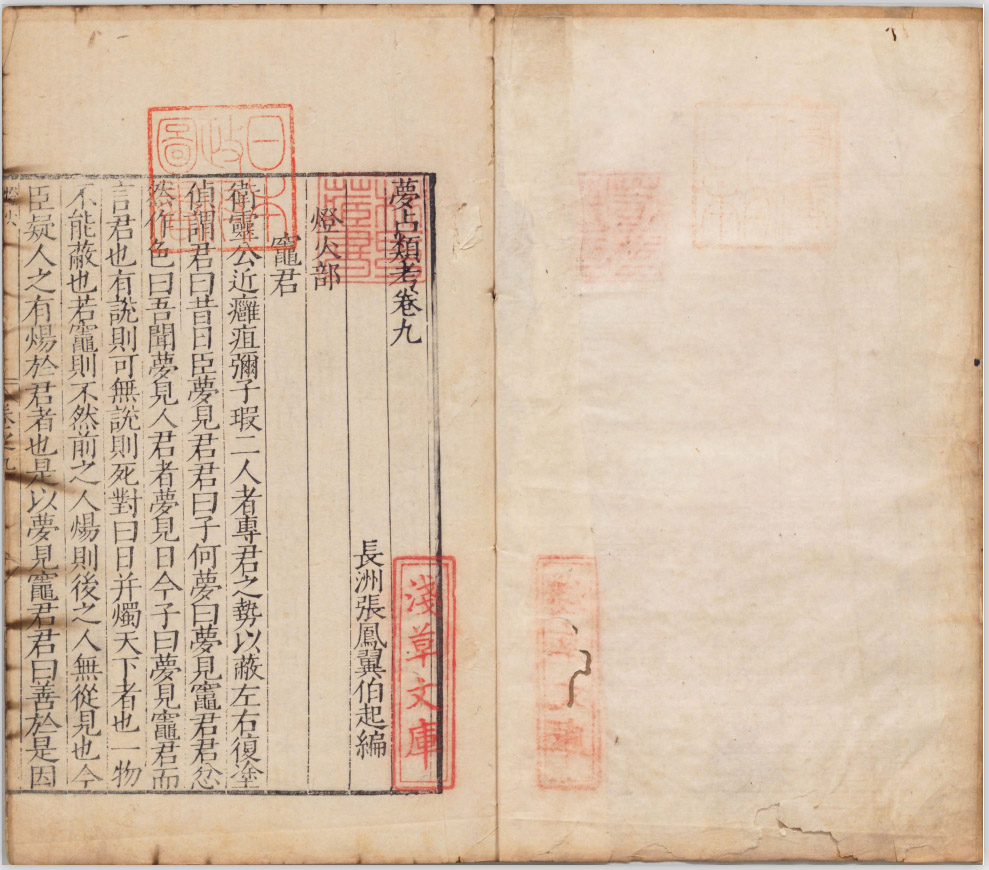 夢占類考卷九
長洲張鳳翼伯起編
燈火部
竈君
衛靈公近癰疽彌子瑕二人者專君之勢以蔽左右復塗
偵謂君曰昔日臣夢見君君曰子何夢曰夢見竈君君忿
然作色曰吾聞夢見人君者夢見日今子曰夢見竈君而
言君也有說則可無說則死對曰日并燭天下者也一物
不能蔽也若竈則不然前之人煬則後之人無從見也今
臣疑人之有煬於君者也是以夢見竈君君曰善於是因
卷之九
淺草文庫
日本